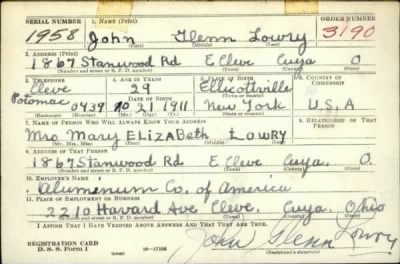 SERIAL NUMBER 1. NAME (Print) ORDER NUMBER
1958 John Glenn Lowry 3190
(First) (Middle) (Last)
2. ADDRESS (Print)
1867 Stanwood Rd E Cleve Cuya O
(Number and street or R. F. D. number) (Town) (County) (State)
3. TELEPHONE 4. AGE IN YEARS 5. PLACE OF BIRTH 6. COUNTRY OF CITIZENSHIP
Cleve 29 Ellicottville
Potomac DATE OF BIRTH
0439 10 21 1911 New York U.S.A
(Exchange) (Number) (Mo.) (Day) (Yr.) (State or country)
7. NAME OF PERSON WHO WILL ALWAYS KNOW YOUR ADDRESS 8. RELATIONSHIP OF THAT PERSON
Mrs. Mary ElizaBeth Lowry
(Mr., Mrs., Miss) (First) (Middle) (Last)
9. ADDRESS OF THAT PERSON
1867 Stanwood Rd E Cleve. Cuya. O.
(Number and street or R. F. D. number) (Town) (County) (State)
10. EMPLOYER'S NAME
Alumenum Co. of America
11. PLACE OF EMPLOYMENT OR BUSINESS
2210 Havard Ave Cleve. Cuya. Ohio
(Number and street or R. F. D. number) (Town) (County) (State)
I AFFIRM THAT I HAVE VERIFIED ABOVE ANSWERS AND THAT THEY ARE TRUE.
REGISTRATION CARD
D. S. S. Form 1 16—17105 John Glenn Lowry
(Registrant's signature)